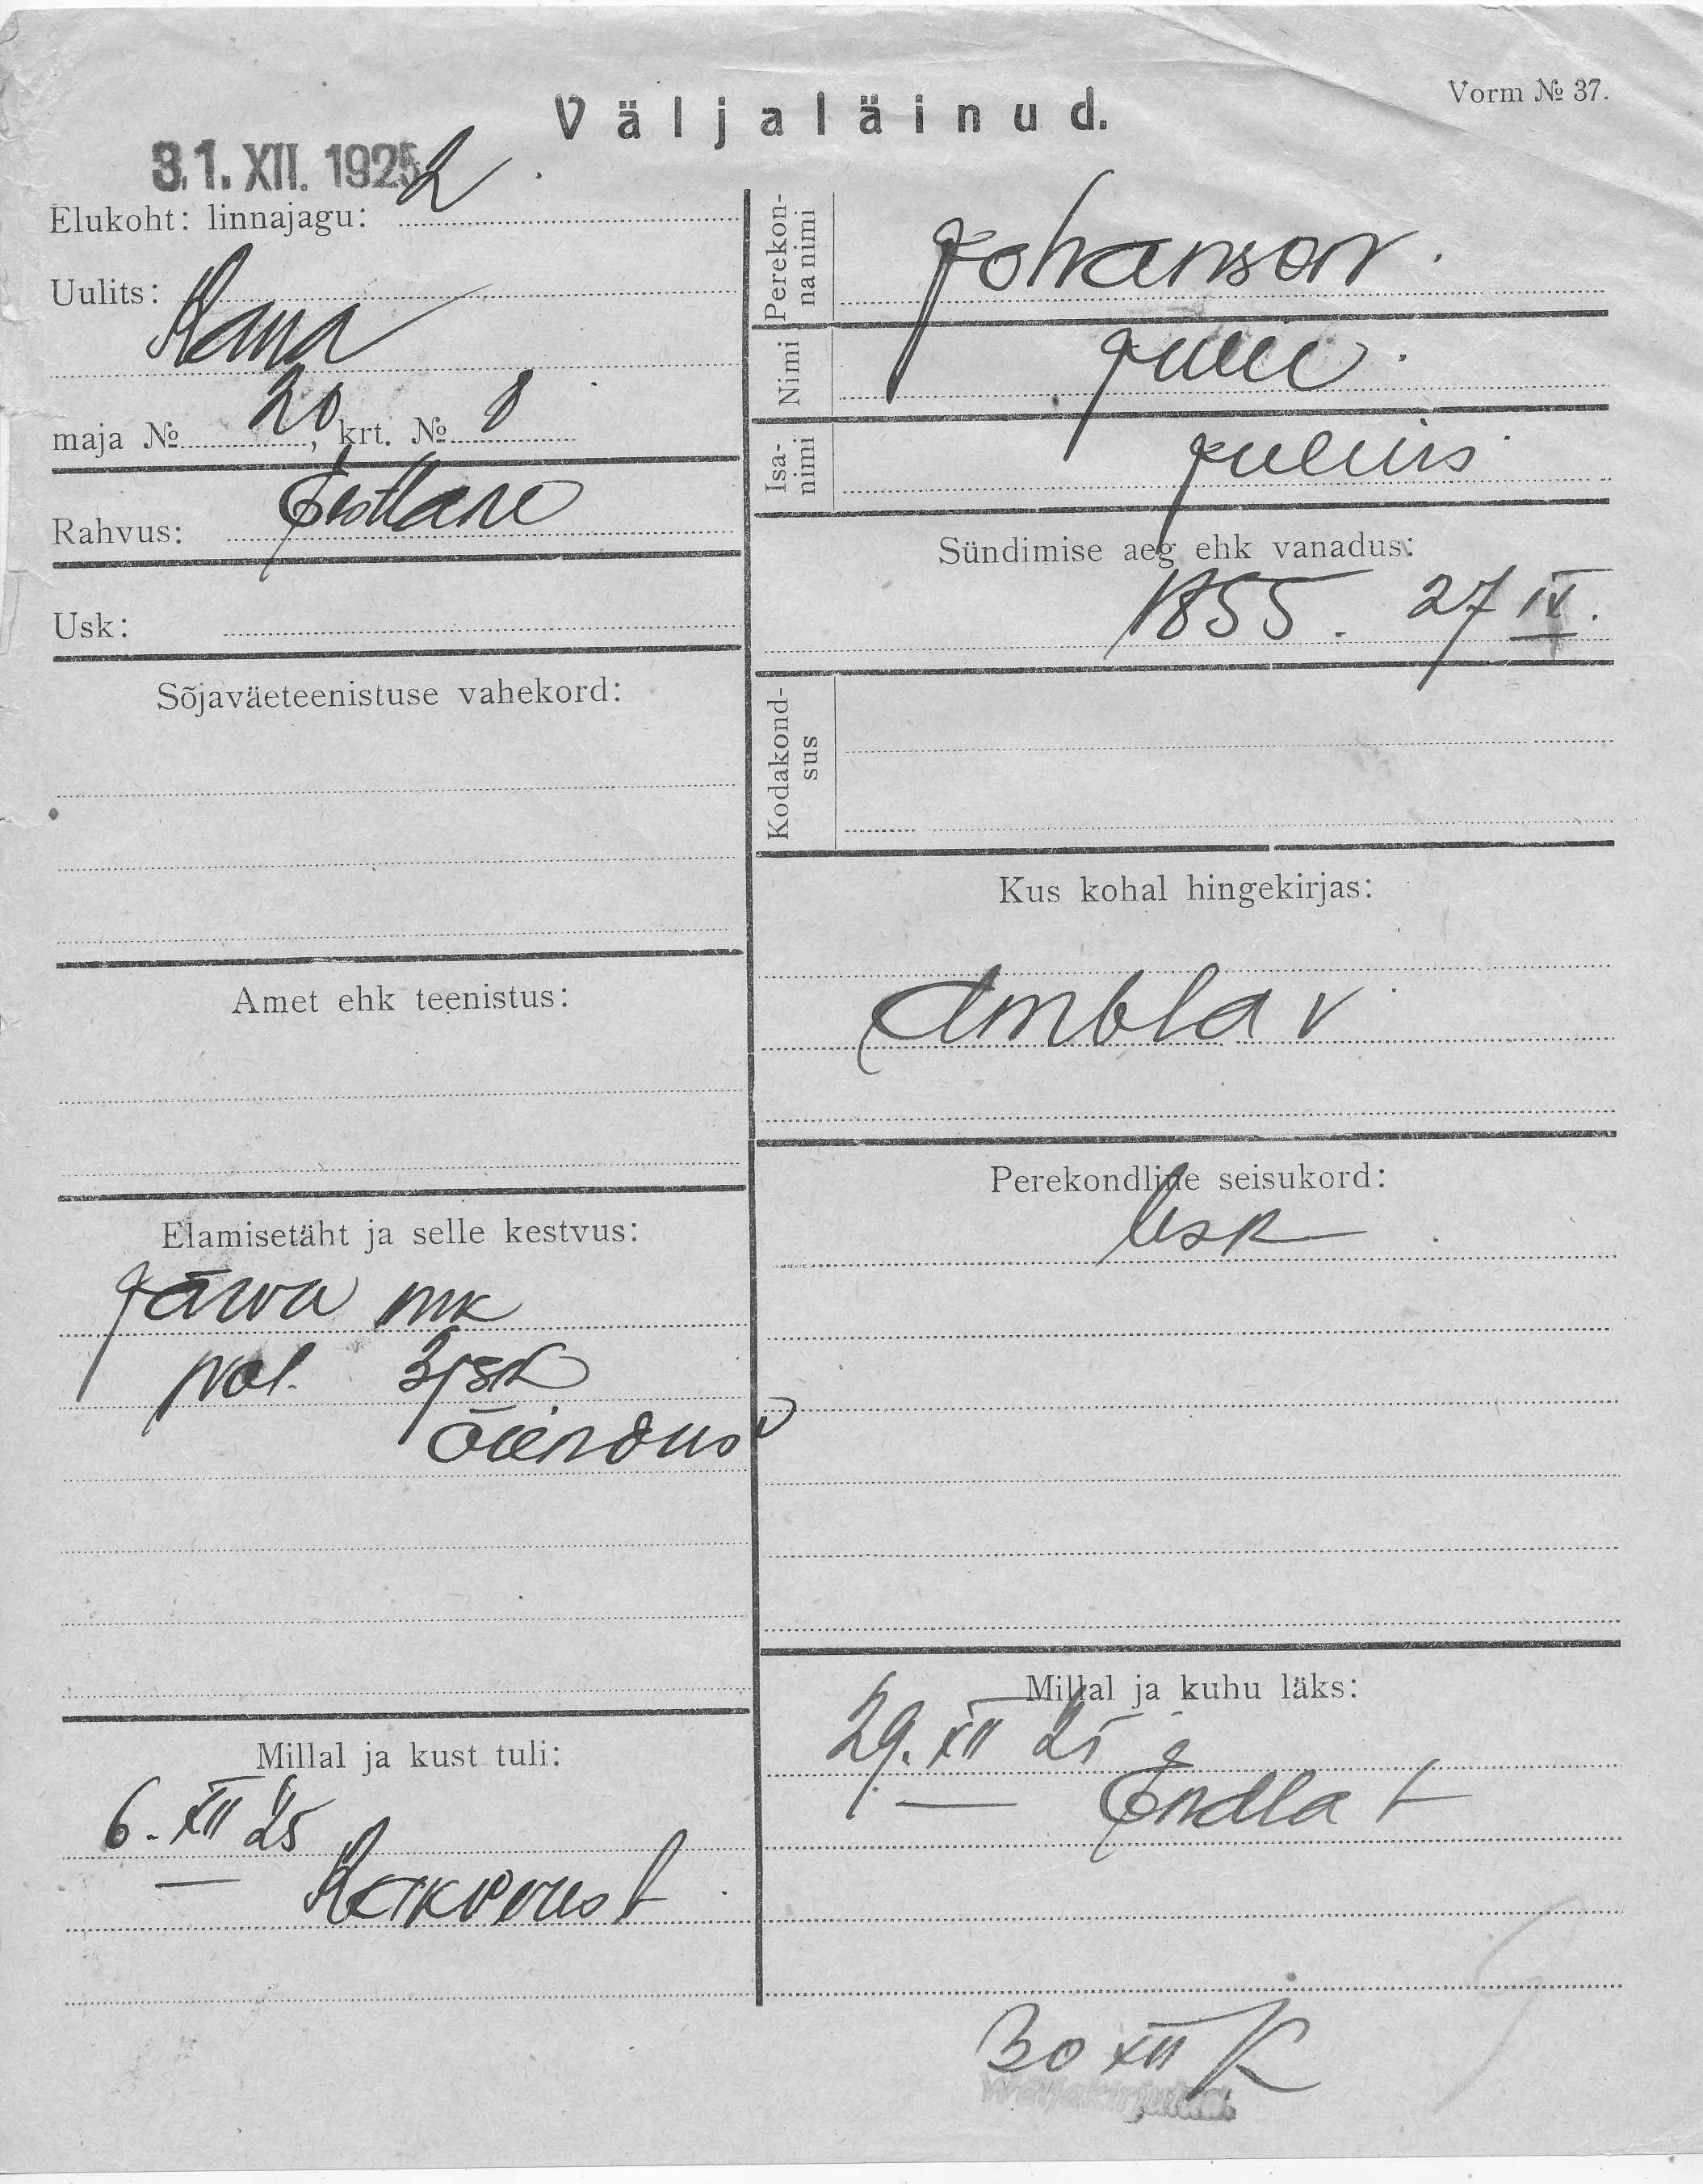 Vorm № 37.
Väljaläinud.
31. XII. 1925
Elukoht: linnajagu: 2
Uulits:
Kana
maja № 20, krt. № 8
Rahvus: Eestlane
Usk:
Sõjaväeteenistuse vahekord:
Amet ehk teenistus:
Elamisetäht ja selle kestvus:
Järva mk
pol. 3 jsk
õiendus
Millal ja kust tuli:
6. XII 25
Rakverest
Perekon-
na nimi
Johanson.
Nimi
Julie.
Isa-
nimi
Julius
Sündimise aeg ehk vanadus:
1855. 27 IX.
Kodakond-
sus
Kus kohal hingekirjas:
Ambla v
Perekondline seisukord:
lesk
Millal ja kuhu läks:
29. XII 25
Endla t
30 XII K
Wäljakirjutud.